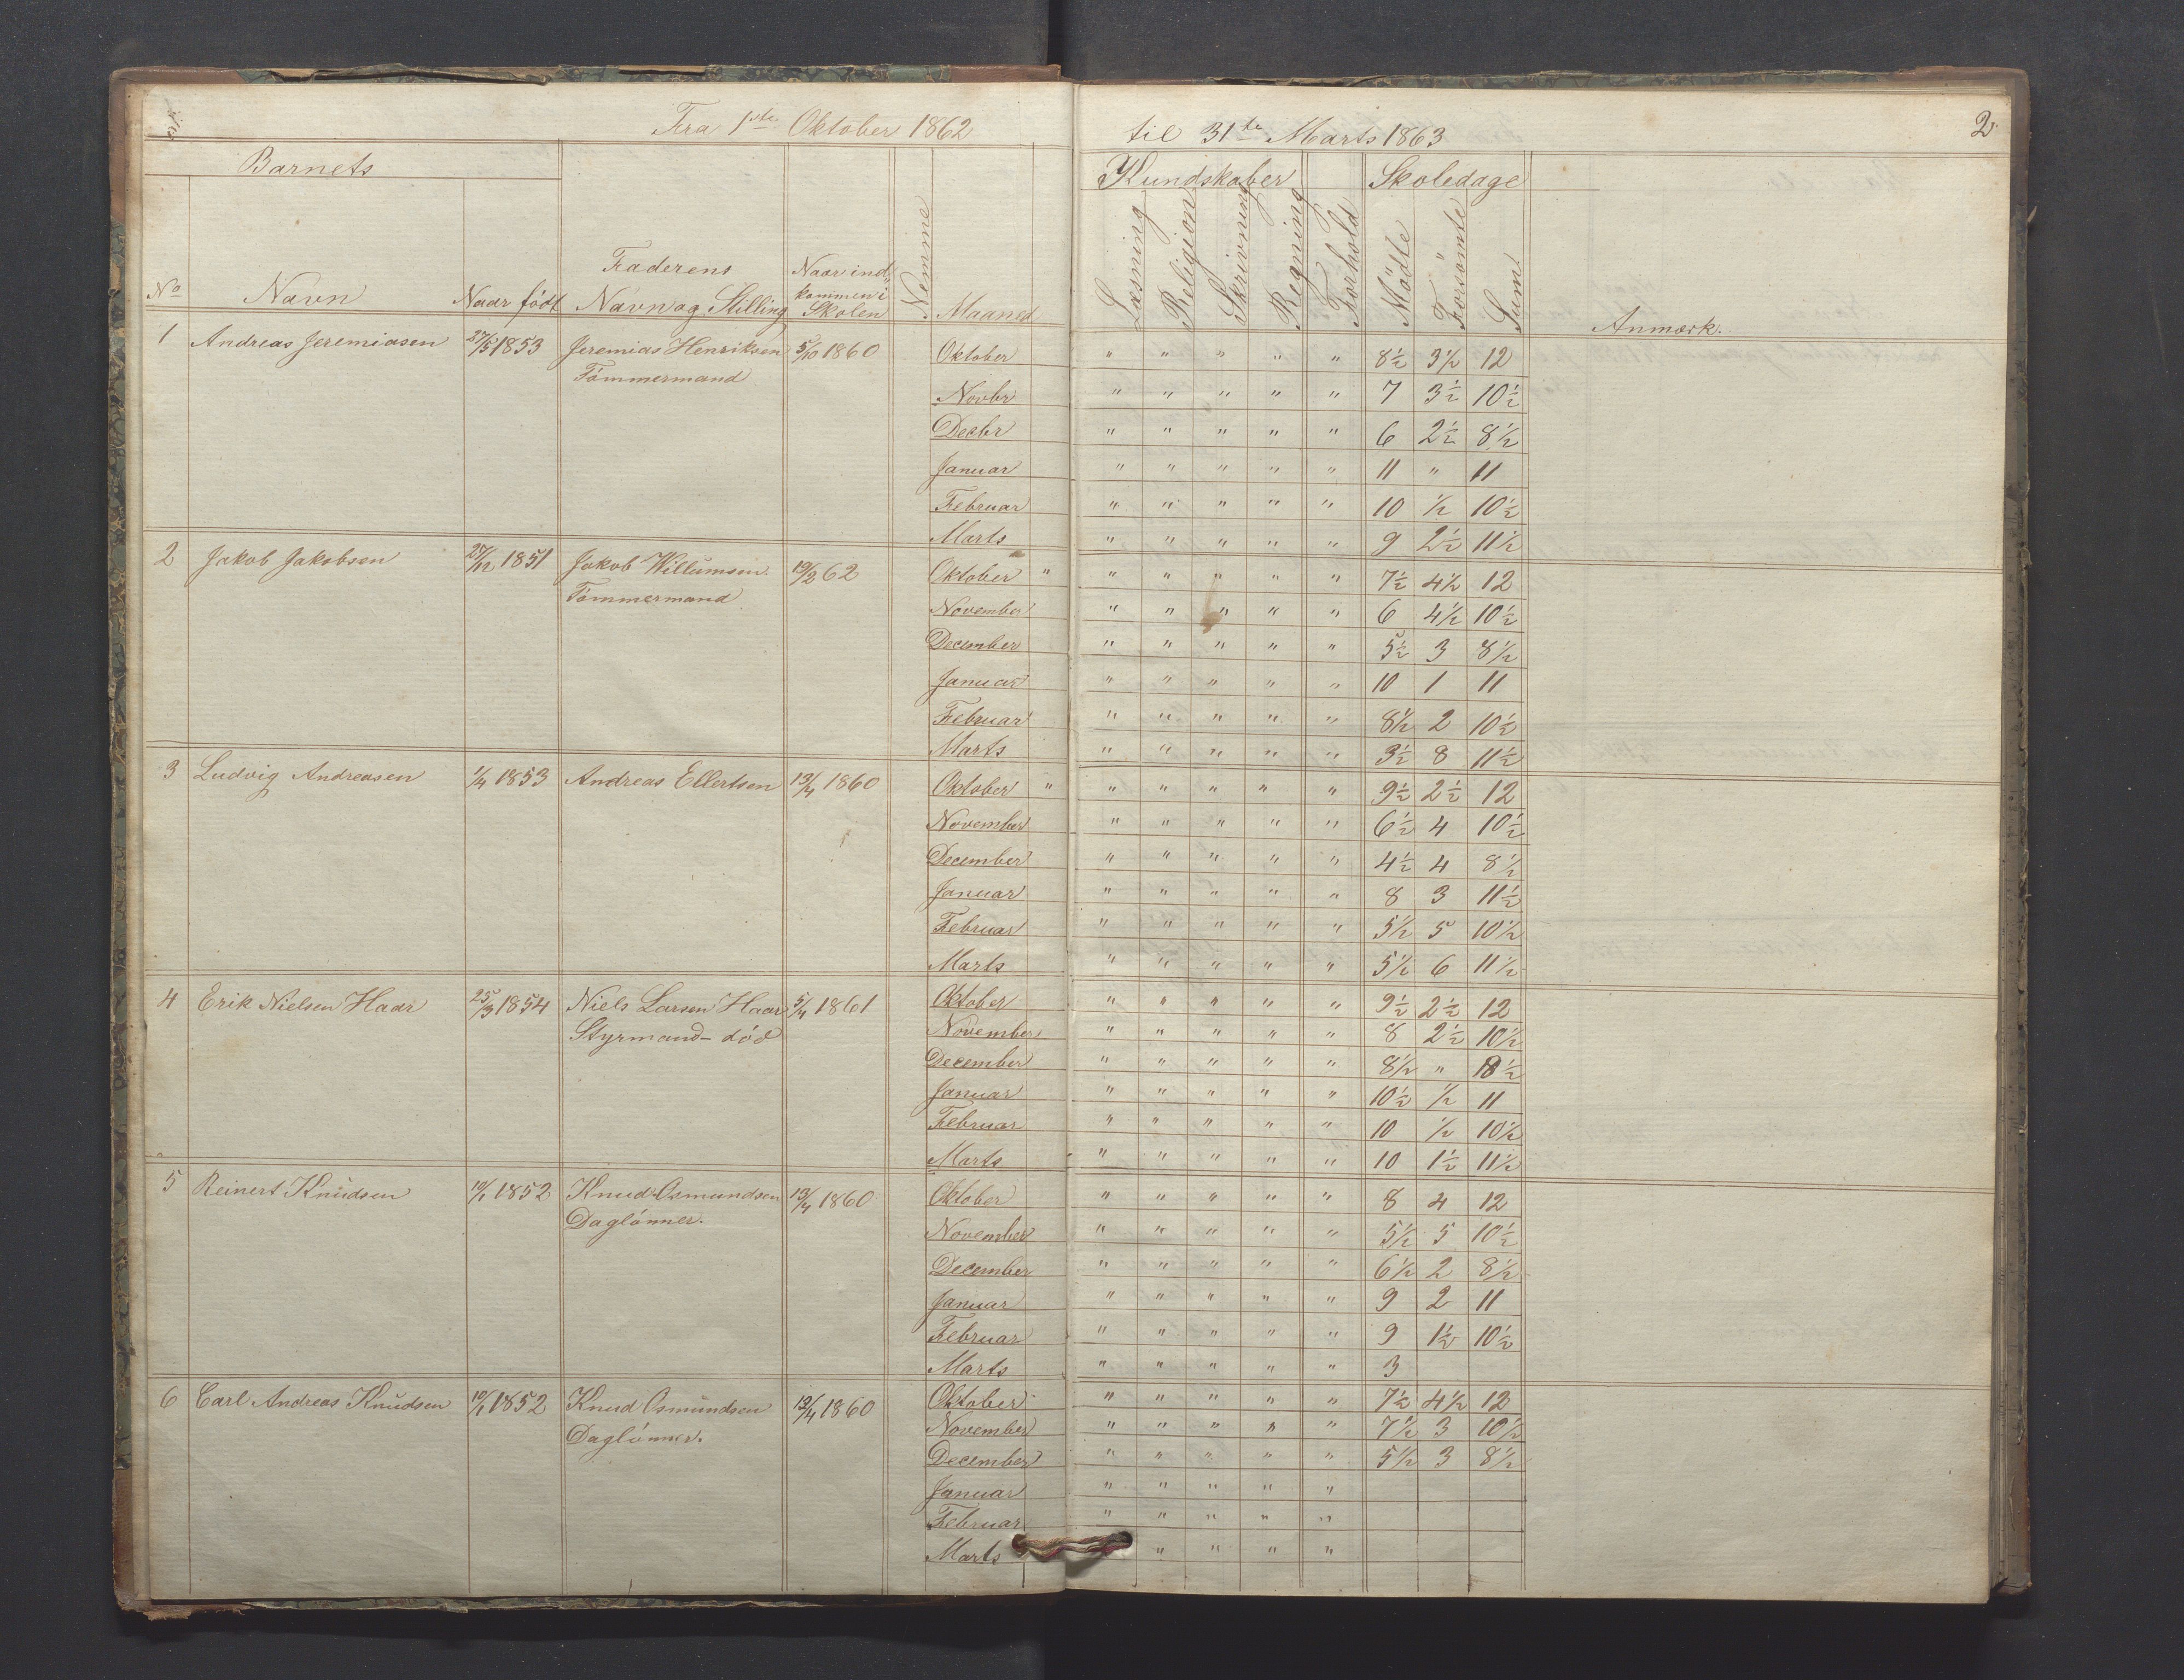 Fra 1ste Oktober 1862 til 31te Marts 1863
2
Barnets
Kundskaber Skoledage
No Navn Naar født Faderens Navn og Stilling Naar indkommen i Skolen Nemme Maaned Læsning Religion Skrivning Regning Forhold Mödte Forsömte Sum Anmærk.
1 Andreas Jeremiasen 27/5 1853 Jeremias Henriksen 5/10 1860 Oktober " " " " " 8½ 3½ 12
Tömmermand
Novbr " " " " " 7 3½ 10½
Decbr " " " " " 6 2½ 8½
Januar " " " " " 11 " 11
Februar " " " " " 10 ½ 10½
Marts " " " " " 9 2½ 11½
2 Jakob Jakobsen 27/12 1851 Jakob Willumsen 19/2 62 Oktober " " " " " " 7½ 4½ 12
Tömmermand
November " " " " " 6 4½ 10½
December " " " " " 5½ 3 8½
Januar " " " " " 10 1 11
Februar " " " " " 8½ 2 10½
Marts " " " " " 3½ 8 11½
3 Ludvig Andreasen 1/4 1853 Andreas Ellertsen 13/4 1860 Oktober " " " " " " 9½ 2½ 12
November " " " " " 6½ 4 10½
December " " " " " 4½ 4 8½
Januar " " " " " 8 3 11½
Februar " " " " " 5½ 5 10½
Marts " " " " " 5½ 6 11½
4 Erik Nielsen Haar 25/3 1854 Niels Larsen Haar 5/4 1861 Oktober " " " " " 9½ 2½ 12
Styrmand - död
November " " " " " 8 2½ 10½
December " " " " " 8½ " 8½
Januar " " " " " 10½ ½ 11
Februar " " " " " 10 ½ 10½
Marts " " " " " 10 1½ 11½
5 Reinert Knudsen 10/1 1852 Knud Osmundsen 13/4 1860 Oktober " " " " " 8 4 12
Daglönner.
November " " " " " 5½ 5 10½
December " " " " " 6½ 2 8½
Januar " " " " " 9 2 11
Februar " " " " " 9 1½ 10½
Marts " " " " " 3
6 Carl Andreas Knudsen 10/1 1852 Knud Osmundsen 13/4 1860 Oktober " " " " " 7½ 4½ 12
Daglönner.
November " " " " " 7½ 3 10½
December " " " " " 5½ 3 8½
Januar " " " " "
Februar " " " " "
Marts " " " "